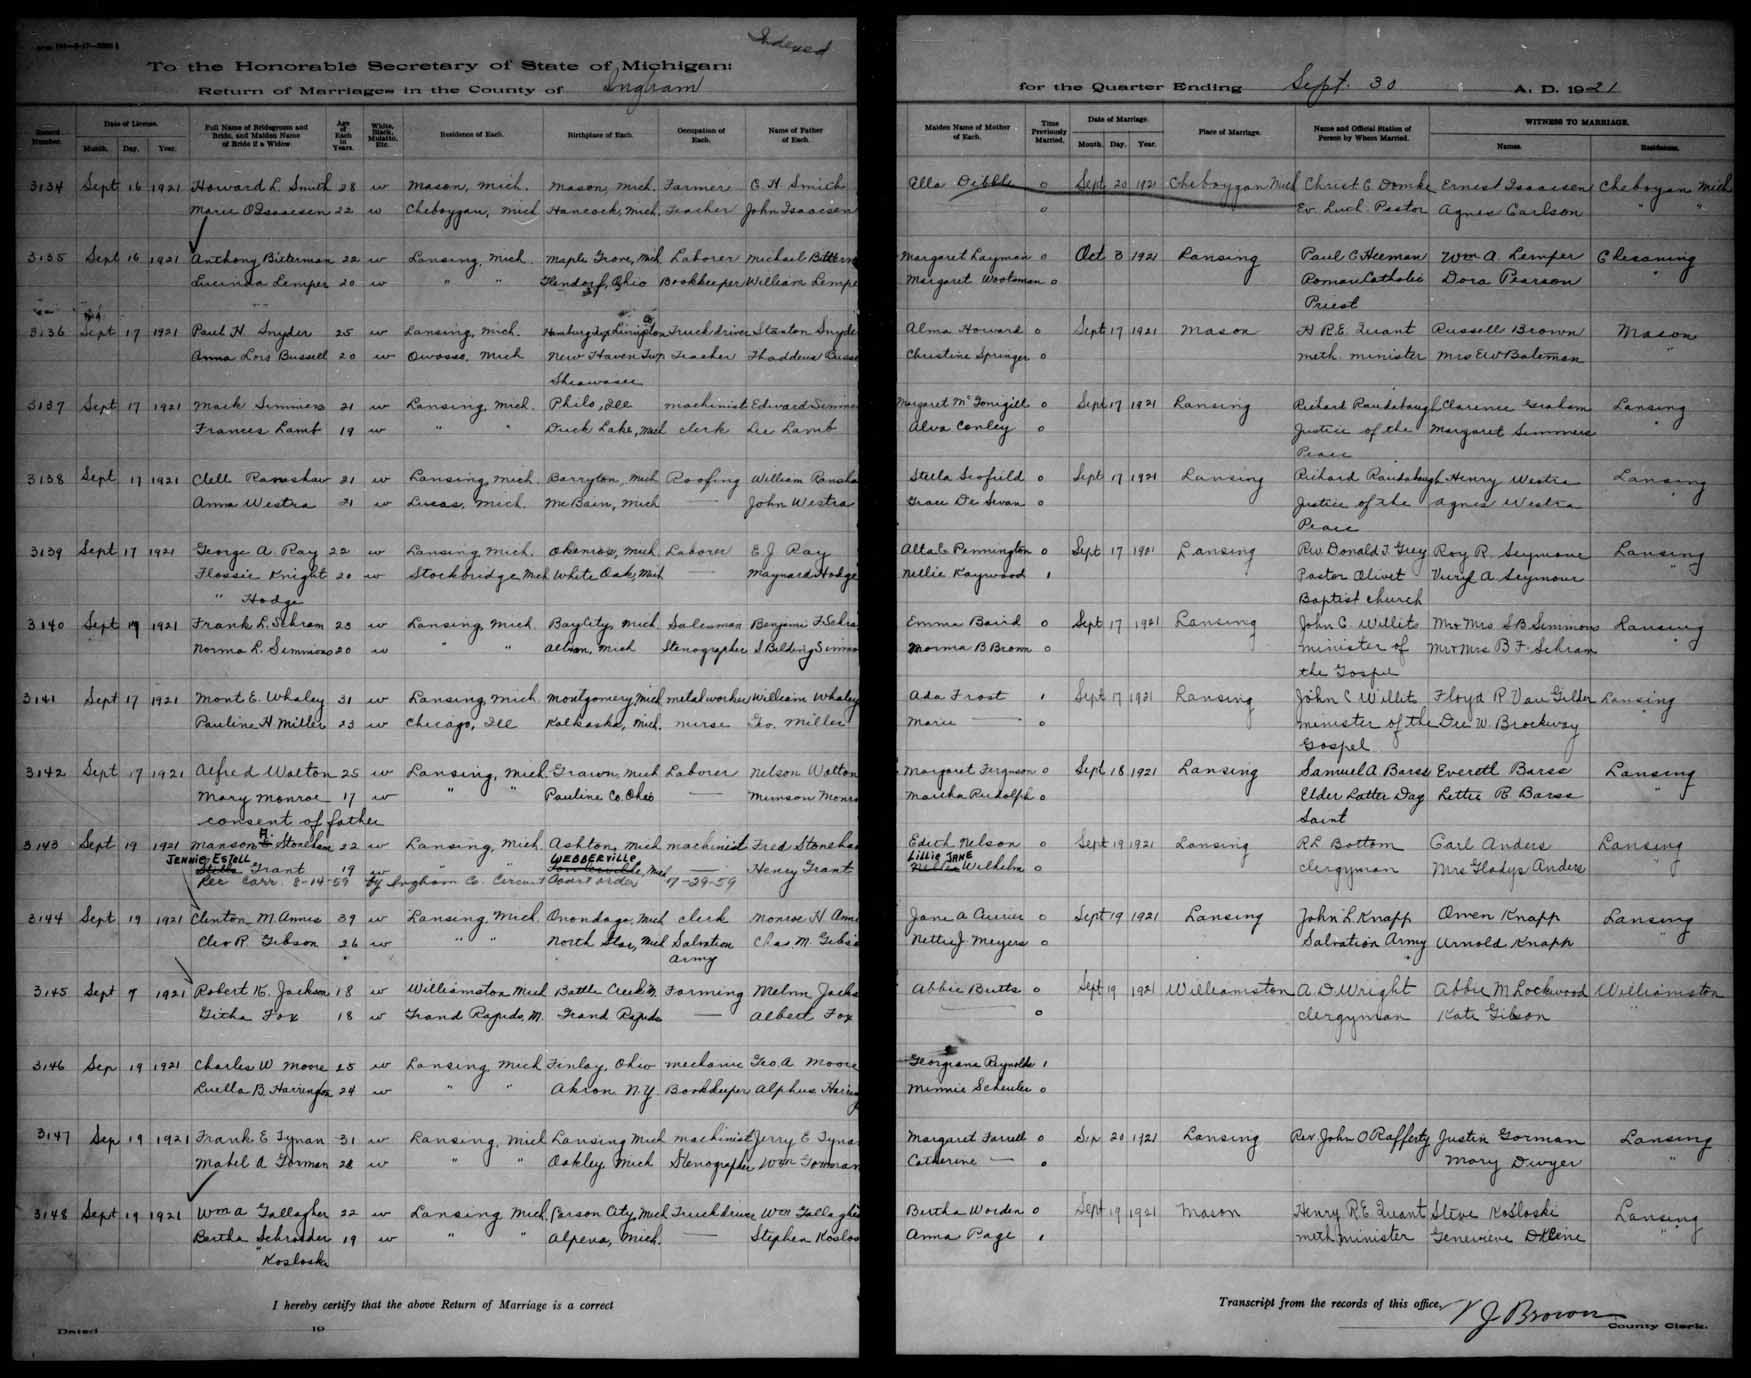 Indexed
To the Honorable Secretary of State of Michigan:
Return of Marriages in the County of Ingham
for the Quarter Ending Sept. 30 A. D. 1921
Record Number. Date of License. Month. Day. Year. Full Name of Bridegroom and Bride, and Maiden Name of Bride if a Widow. Age of Each in Years. White, Black, Mulatto, Etc. Residence of Each. Birthplace of Each. Occupation of Each. Name of Father of Each.
Maiden Name of Mother of Each. Time Previously Married. Date of Marriage. Month. Day. Year. Place of Marriage. Name and Official Station of Person by Whom Married. WITNESS TO MARRIAGE. Names. Residence.
3134 Sept 16 1921 Howard L. Smith 28 w Mason, Mich. Mason, Mich. Farmer C. H. Smith Ella Dibble 0 Sept 20 1921 Cheboygan Mich Christ C. Domke Ernest Isaacsen Cheboygan Mich
Marie O Isaacsen 22 w Cheboygan, Mich Hancock, Mich. Teacher John Isaacsen 0 Ev. Luth. Pastor Agnes Carlson " "
3135 Sept 16 1921 Anthony Bitterman 22 w Lansing, Mich. Maple Grove, Mich Laborer Michael Margaret Layman 0 Oct 3 1921 Lansing Paul C Heeman Wm A. Lemper Chesaning
Lucinda Lemper 20 w " " Glendorf, Ohio Bookkeeper William Margaret Wootsman 0 Roman Catholic Dora Pearson "
Priest
3136 Sept 17 1921 Paul H. Snyder 25 w Lansing, Mich. Hamburg Twp Livingston Co Truck driver Stanton Alma Howard 0 Sept 17 1921 Mason H R.E. Quant Russell Brown Mason
Anna Lois Bussell 20 w Owosso, Mich New Haven Twp Teacher Thaddeus Christine Springer 0 meth. minister Mrs EW Bateman "
Shiawassee
3137 Sept 17 1921 Mark Simmers 21 w Lansing, Mich. Philo, Ill machinist Edward Margaret McGonigill 0 Sept 17 1921 Lansing Richard Raudabaugh Clarence Graham Lansing
Frances Lamb 19 w " " Duck Lake, Mich clerk Lee Lamb Alva Conley 0 Justice of the Margaret Simmers "
Peace
3138 Sept 17 1921 Clell Ranshaw 21 w Lansing, Mich. Barryton, Mich Roofing William Stella Scofield 0 Sept 17 1921 Lansing Richard Raudabaugh Henry Westra Lansing
Anna Westra 21 w Lucas, Mich. McBain, Mich — John Westra Grace De Swan 0 Justice of the Agnes Westra "
Peace
3139 Sept 17 1921 George A. Ray 22 w Lansing Mich. Okemos, Mich. Laborer E. J. Ray Alta E Pennington 0 Sept 17 1921 Lansing Rev. Donald T. Grey Roy R. Seymour Lansing
Flossie Knight 20 w Stockbridge Mich White Oak, Mich — Maynard Hodge Nellie Kaywood 1 Pastor Olivet Veryl A. Seymour "
" Hodge Baptist church
3140 Sept 17 1921 Frank L. Schram 23 w Lansing, Mich. Bay City, Mich. Salesman Emma Baird 0 Sept 17 1921 Lansing John C. Willits Mr & Mrs S B Simmons Lansing
Norma L. Simmons 20 w " " Albion, Mich Stenographer S Belding Norma B Brown 0 minister of Mr & Mrs B F. Schram "
the Gospel
3141 Sept 17 1921 Mont E. Whaley 31 w Lansing, Mich. Montgomery, Mich metal worker William Whaley Ada Frost 1 Sept 17 1921 Lansing John C Willits Floyd R Van Gilder Lansing
Pauline H Miller 23 w Chicago, Ill Kalkaska, Mich. nurse Geo. Miller Marie — 0 minister of the Dee W. Brockway "
Gospel
3142 Sept 17 1921 Alfred Walton 25 w Lansing, Mich Grawn, Mich Laborer Nelson Walton Margaret Ferguson 0 Sept 18 1921 Lansing Samuel A Barss Everett Barss Lansing
Mary Monroe 17 w " " Pauline Co. Ohio — Munson Martha Rudolph 0 Elder Latter Day Lettie R Barss "
consent of father Saint
3143 Sept 19 1921 Manson A. Stoneham 22 w Lansing, Mich. Ashton, Mich machinist Fred Edith Nelson 0 Sept 19 1921 Lansing R L Bottom Carl Anders Lansing
JENNIE ESTELL Grant 19 w " " WEBBERVILLE, Mich — Henry Grant LILLIE JANE Wilhelm 0 clergyman Mrs Gladys Anders "
Rec Corr. 8-14-59 by Ingham Co. Circuit Court order 7-29-59
3144 Sept 19 1921 Clinton M. Annis 39 w Lansing Mich. Onondaga, Mich clerk Monroe H Jane A Currier 0 Sept 19 1921 Lansing John L Knapp Owen Knapp Lansing
Cleo R. Gibson 26 w " " North Star, Mich Salvation Chas. M. Nettie J. Meyers 0 Salvation Army Arnold Knapp "
Army
3145 Sept 7 1921 Robert K. Jackson 18 w Williamston Mich Battle Creek M. Farming Melvin Abbie Butts 0 Sept 19 1921 Williamston A D Wright Abbie M Lockwood Williamston
Githa Fox 18 w Grand Rapids, M. Grand Rapids — Albert Fox — 0 clergyman Kate Gibson "
3146 Sep 19 1921 Charles W Moore 25 w Lansing Mich Finlay, Ohio mechanic Geo. A Moore Georgiana Reynolds 1
Luella B. Harrington 24 w " " Akron N.Y. Bookkeeper Alpheus Minnie Scheuler 0
3147 Sep 19 1921 Frank E Tynan 31 w Lansing, Mich Lansing Mich machinist Jerry E Margaret Farrell 0 Sep 20 1921 Lansing Rev. John O Rafferty Justin Gorman Lansing
Mabel A Gorman 28 w " " Oakley, Mich Stenographer Wm Gorman Catherine — 0 Mary Dwyer "
3148 Sept 19 1921 Wm A Gallagher 22 w Lansing Mich. Carson City, Mich Truck driver Wm Bertha Worden 0 Sept 19 1921 Mason Henry R E Quant Steve Kosloski Lansing
Bertha Schroeder 19 w " " Alpena, Mich. — Stephen Anna Page 1 meth minister Genevieve "
" Kosloski
I hereby certify that the above Return of Marriage is a correct Transcript from the records of this office,
Dated 19 V J Brown County Clerk.